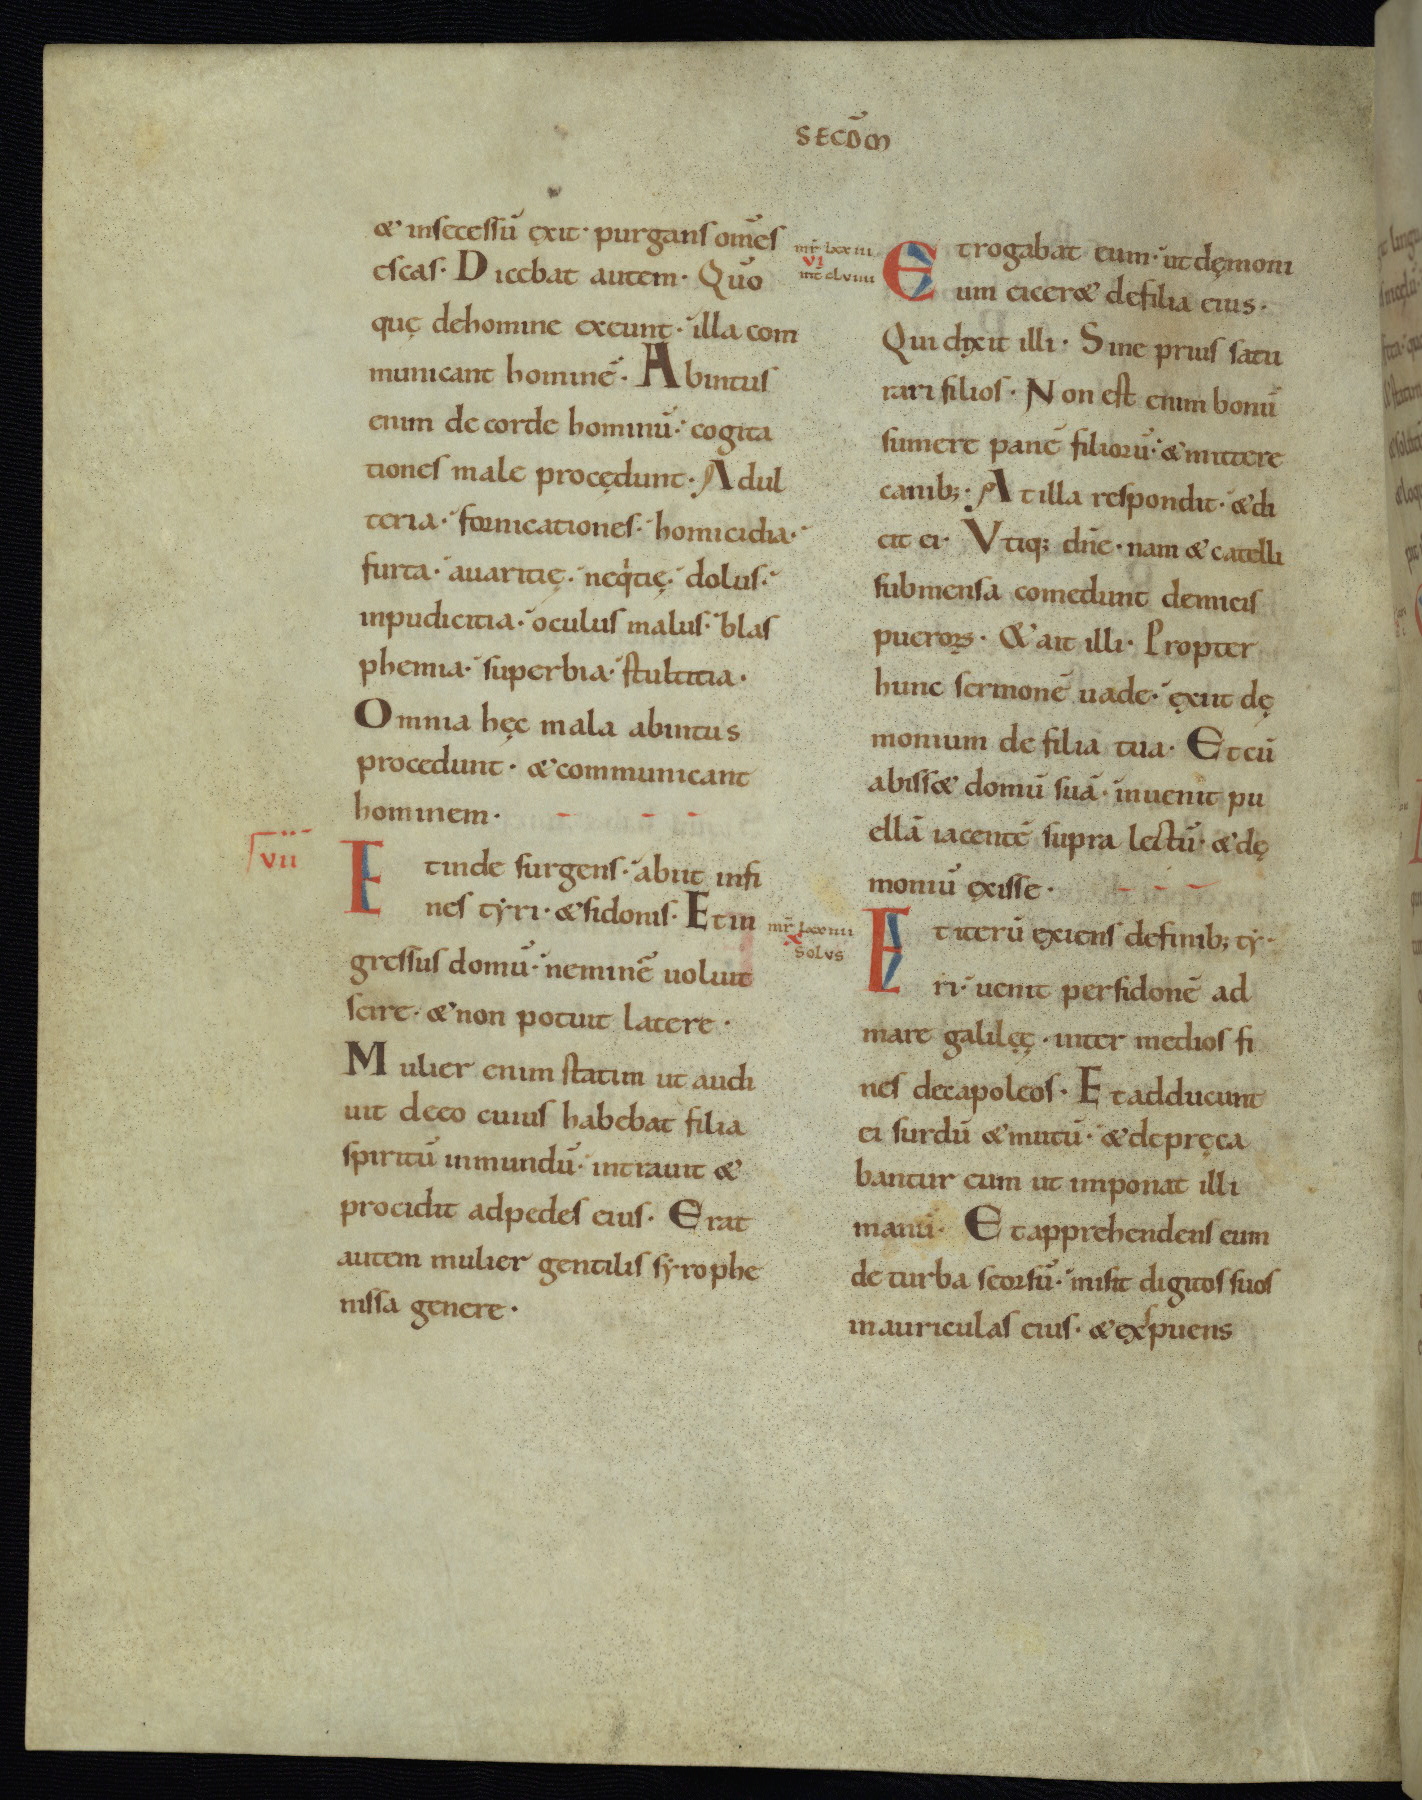 SECD̄M
& insecessū exit· purgans om̄es
escas· Dicebat autem· Quo
quę dehomine exeunt· illa com
municant hominē· Abintus
enim de corde hominū· cogita
tiones male procędunt· Adul
teria· fornicationes· homicidia·
furta· auaritię· neqͥtię· dolus·
inpudicitia· oculus malus· blas
phemia· superbia· stultitia·
Omnia hęc mala abintus
procedunt· & communicant
hominem·
VII
Et inde surgens· abiit infi
nes tyri· & sidonis· Et in
gressus domū· neminē uoluit
scire· & non potuit latere·
Mulier enim statim ut audi
uit deeo cuius habebat filia
spiritū inmundū· intrauit &
procidit adpedes eius· Erat
autem mulier gentilis syrophe
nissa genere·
mr̄ lxxiii
VI
mt̄ clviiii
Et rogabat eum· ut dęmoni
um eicer& defilia eius·
Qui dixit illi· Sine prius satu
rari filios· Non est enim bonū
sumere panē filiorū· & mittere
canib;· At illa respondit· & di
cit ei· Vtiq; dn̄e· nam & catelli
submensa comedunt demicis
pueroꝝ· & ait illi· Propter
hunc sermonē uade· exiit dę
monium de filia tua· Et cū
abiss& domū suā· inuenit pu
ellā iacentē supra lectū· & dę
moniū exisse·
mr̄ lxxiiii
X
solvs
Et iterū exiens definib; ty
ri· uenit persidonē ad
mare galileę· inter medios fi
nes decapoleos· Et adducunt
ei surdū & mutū· & depręca
bantur eum ut imponat illi
manū· Et apprehendens eum
de turba seorsū· misit digitos suos
inauriculas eius· & exspuens